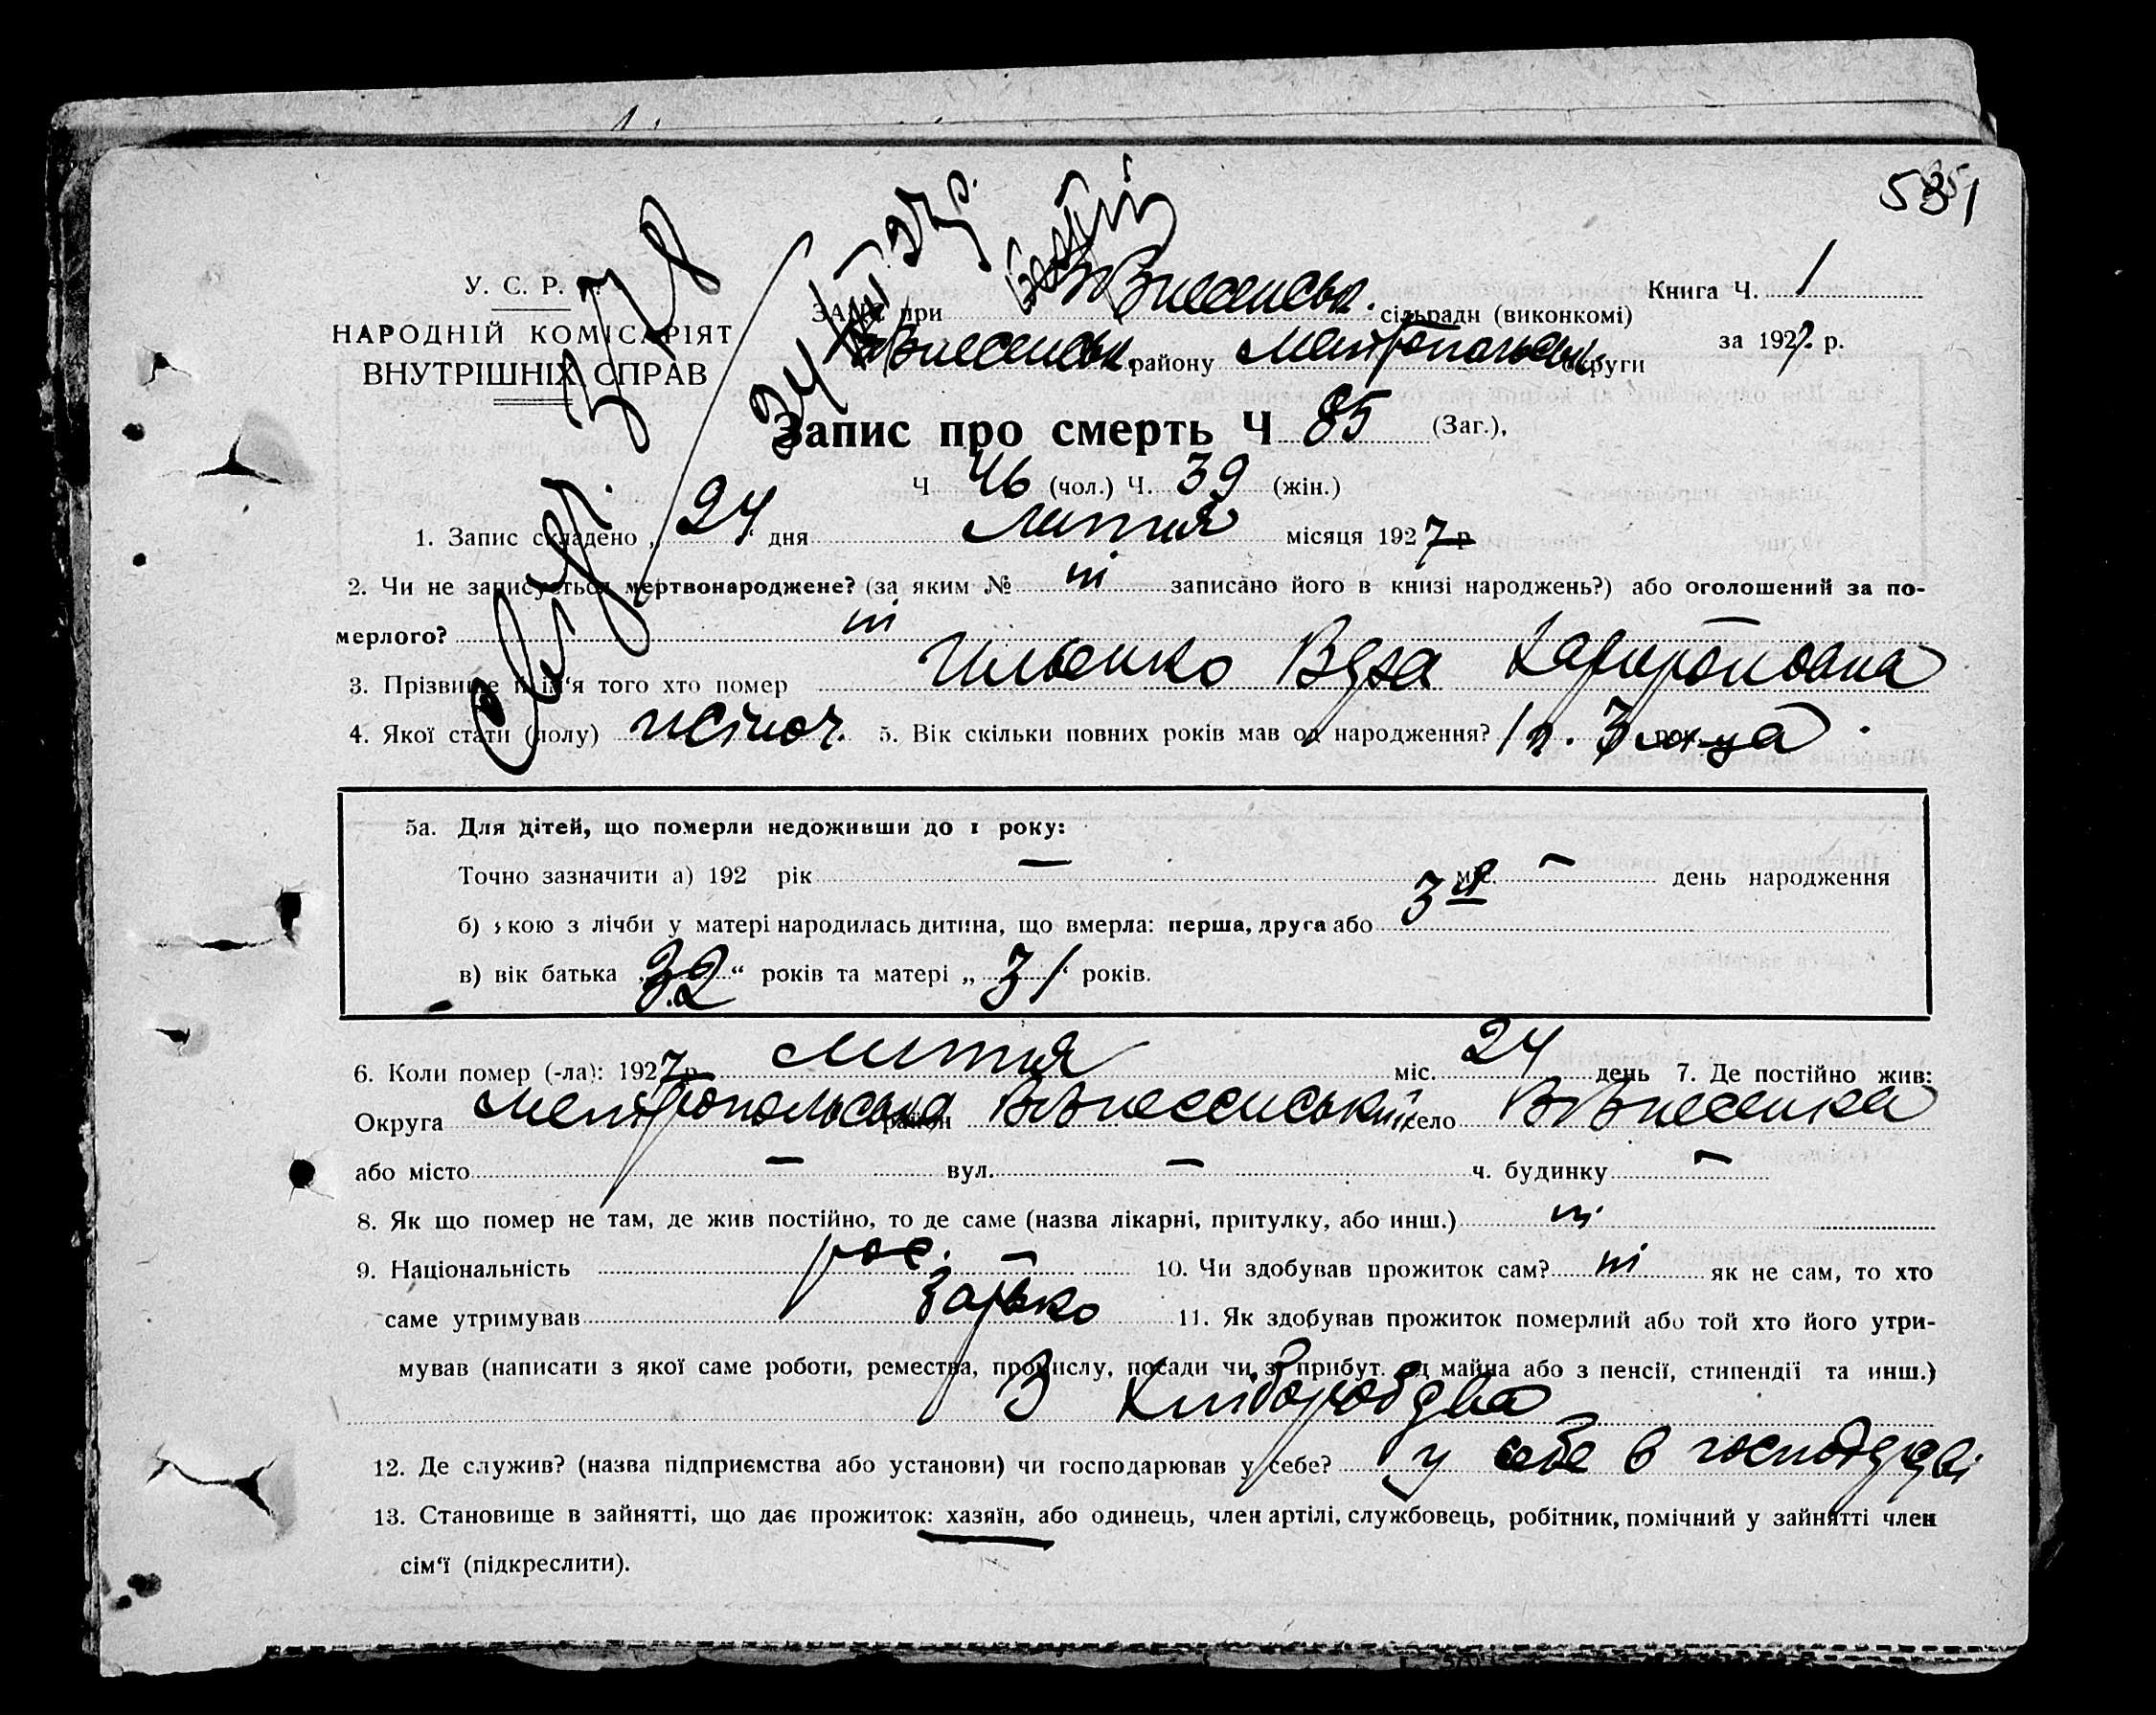 531
У. С. Р. Р.
НАРОДНІЙ КОМІСАРІЯТ
ВНУТРІШНІХ СПРАВ
ЗАПИС при В Внесенськ. сільради (виконкомі)
В Внесенськ. району Мелітопольськ. округи
Книга Ч. 1
за 1927 р.
Запис про смерть Ч 85 (Заг.),
Ч 46 (чол.) Ч. 39 (жін.)
1. Запис складено „ 24 “ дня лютня місяця 1927 р
2. Чи не записується мертвонароджене? (за яким № ні записано його в книзі народжень?) або оголошений за по-
мерлого? ні
3. Прізвище й ім‘я того хто помер Харитоновна
4. Якої стати (полу) жіноч. 5. Вік скільки повних років мав од народження? 1 р. 3 м-ца.
5а. Для дітей, що померли недоживши до 1 року:
Точно зазначити а) 192 рік — міс. — день народження
б) якою з лічби у матері народилась дитина, що вмерла: перша, друга або 3я
в) вік батька „ 32 “ років та матері „ 31 “ років.
6. Коли помер (-ла): 1927 р. лютня міс. 24 день 7. Де постійно жив:
Округа Мелітопольська район В Внесенський село В Внесенка
або місто — вул. — ч. будинку —
8. Як що помер не там, де жив постійно, то де саме (назва лікарні, притулку, або инш.) ні
9. Національність рос. — 10. Чи здобував прожиток сам? ні як не сам, то хто
саме утримував батько 11. Як здобував прожиток померлий або той хто його утри-
мував (написати з якої саме роботи, ремества, промислу, посади чи з прибут. од майна або з пенсії, стипендії та инш.)
З хліборобдва
12. Де служив? (назва підприємства або установи) чи господарював у себе? у себе в
13. Становище в зайнятті, що дає прожиток: хазяїн, або одинець, член артілі, службовець, робітник, помічний у зайнятті член
сім‘ї (підкреслити).